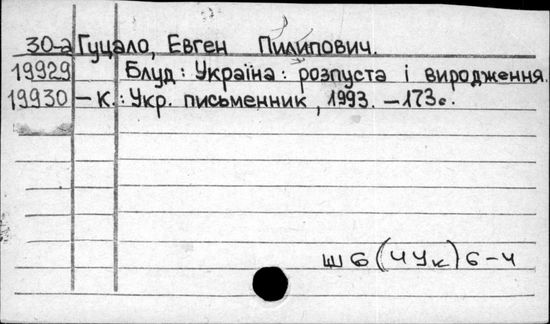 30-а Гуцало, Евген Пилипович.
19929 Блуд: Україна: розпуста і виродження.
19930 – К.: Укр. письменник, 1993. – 173с.
Ш6(4Ук)6-4